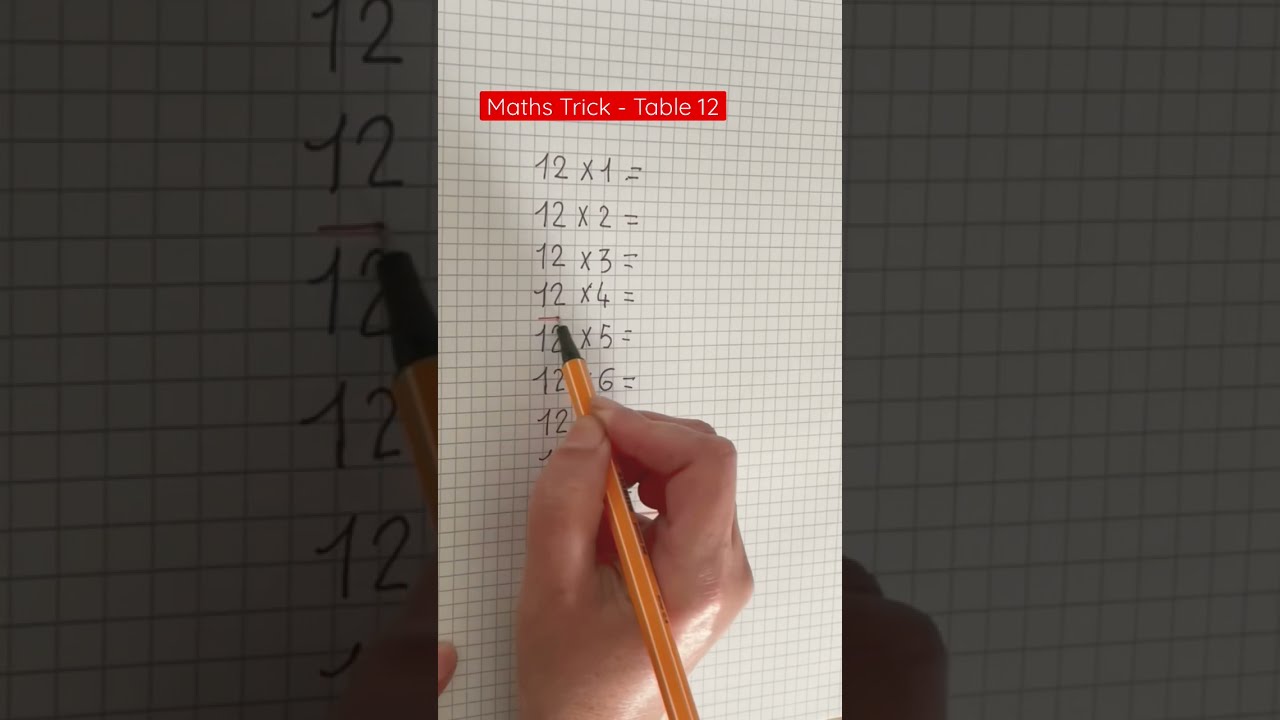 Maths Trick - Table 12
12 x 1 =
12 x 2 =
12 x 3 =
12 x 4 =
12 x 5 =
12 6 =
12